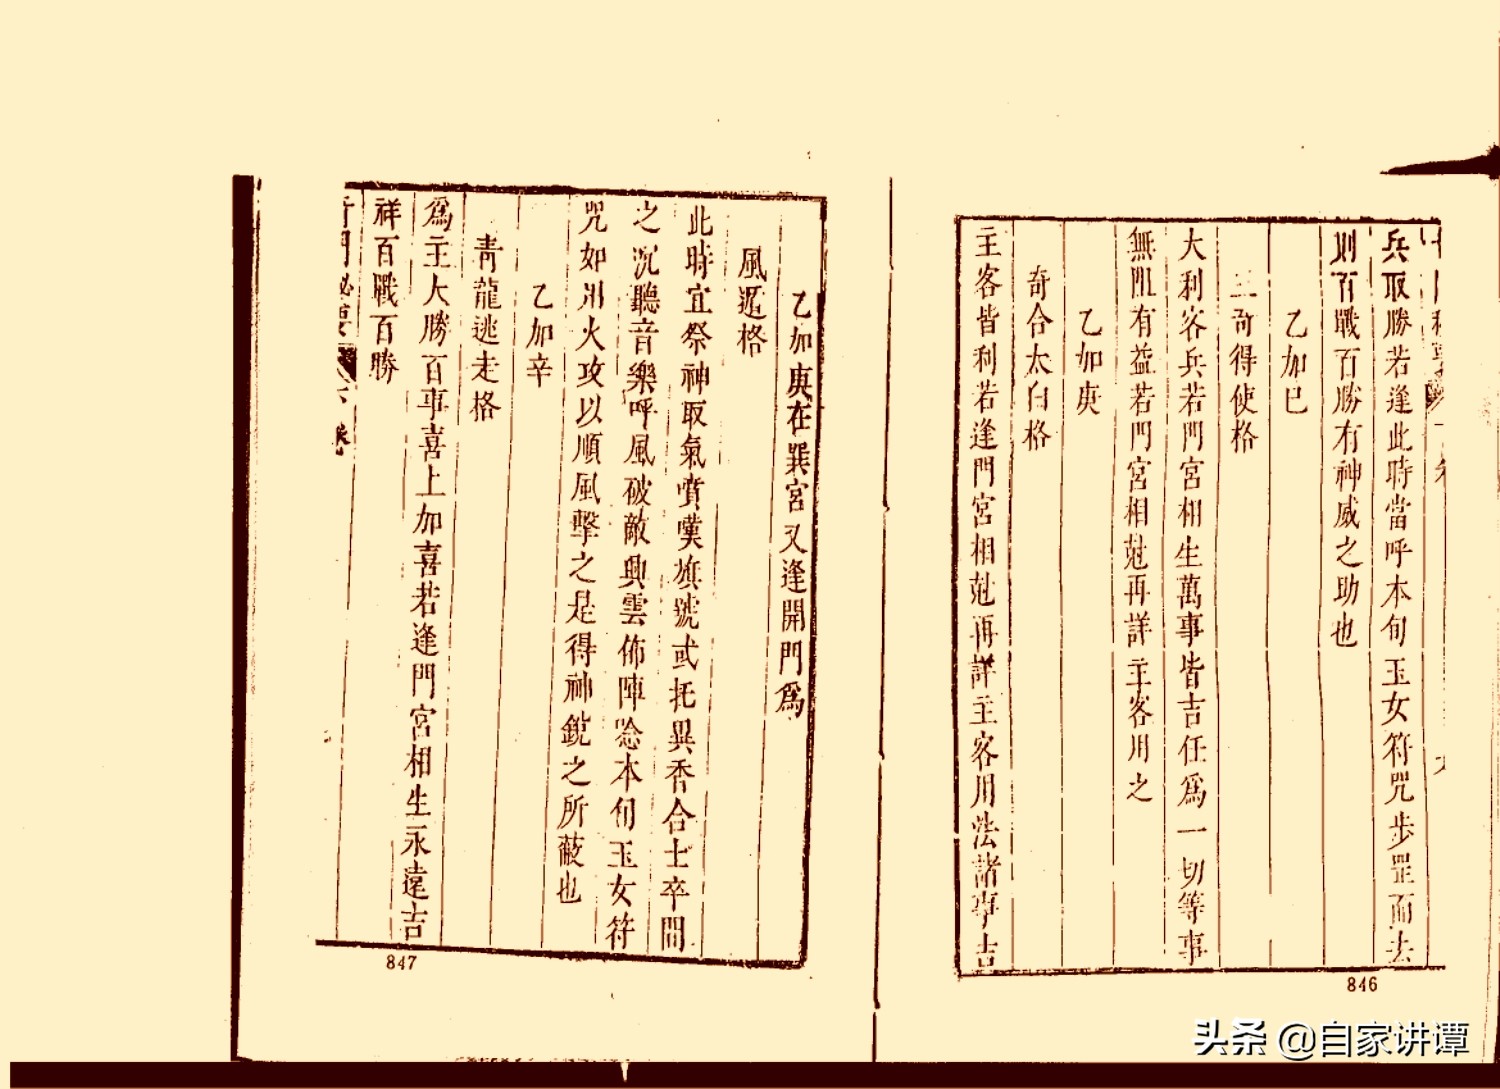 兵取勝若逢此時當呼本旬玉女符咒步罡而去
則百戰百勝有神威之助也
乙加巳
三奇得使格
大利客兵若門宮相生萬事皆吉任爲一切等事
無阻有益若門宮相尅再詳主客用之
乙加庚
奇合太白格
主客皆利若逢門宮相尅再詳主客用法諸事吉
846
乙加庚在巽宮又逢開門爲
風遁格
此時宜祭神取氣噴嘆旗號或托異香合士卒聞
之沉聽音樂呼風破敵興雲佈陣念本旬玉女符
咒如用火攻以順風擊之是得神銳之所蔽也
乙加辛
青龍逃走格
爲主大勝百事喜上加喜若逢門宮相生永遠吉
祥百戰百勝
847
头条 @自家讲谭